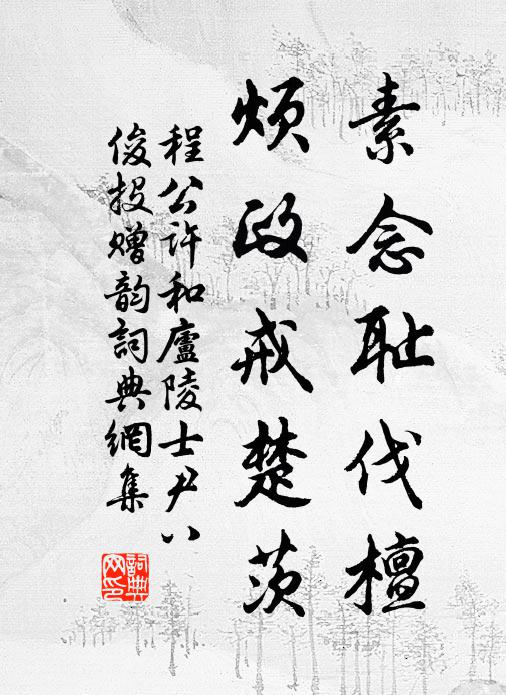 素念耻伐檀
烦政戒楚茨
程公许和廬陵士尹八
俊投贈韵詞典網集
詞典
网印